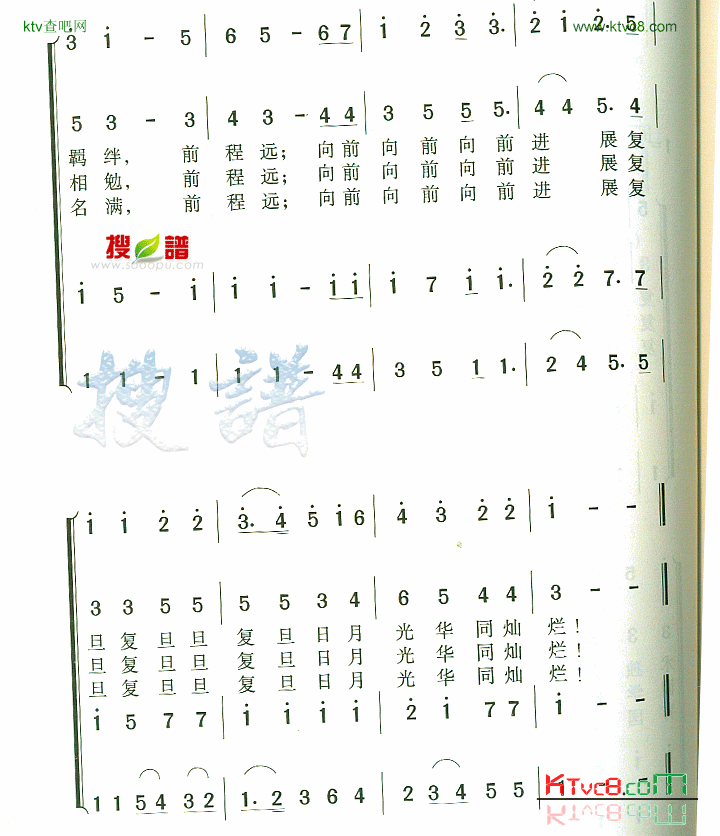 ktv查吧网
www.ktvc8.com
3 i - 5 | 6 5 - 6 7 | i 2 3 3. | 2 i 2. 5
5 3 - 3 | 4 3 - 4 4 | 3 5 5 5. | 4 4 5. 4
羁绊, 前程远; 向前向前向前进 展复
相勉, 前程远; 向前向前向前进 展复
名满, 前程远; 向前向前向前进 展复
搜谱
www.sooopu.com
i 5 - i | i i - i i | i 7 i i. | 2 2 7. 7
1 1 - 1 | 1 1 - 4 4 | 3 5 1 1. | 2 4 5. 5
搜谱
i i 2 2 | 3. 4 5 i 6 | 4 3 2 2 | i - -
3 3 5 5 | 5 5 3 4 | 6 5 4 4 | 3 - -
旦复旦旦 复旦日月 光华同灿烂!
旦复旦旦 复旦日月 光华同灿烂!
旦复旦旦 复旦日月 光华同灿烂!
i 5 7 7 | i i i i | 2 i 7 7 | i - -
1 1 5 4 3 2 | 1. 2 3 6 4 | 2 3 4 5 5 |
KTvc8.com